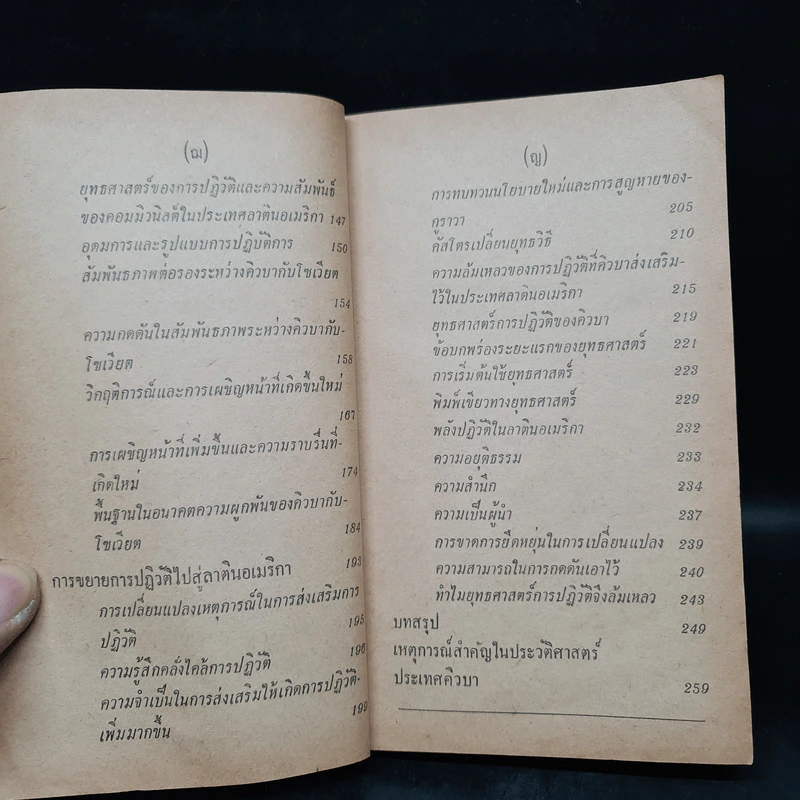 (ฌ)
ยุทธศาสตร์ของการปฏิวัติและความสัมพันธ์
ของคอมมิวนิสต์ในประเทศลาตินอเมริกา 147
อุดมการและรูปแบบการปฏิบัติการ 150
สัมพันธภาพต่อรองระหว่างคิวบากับโซเวียต
154
ความกดดันในสัมพันธภาพระหว่างคิวบากับ-
โซเวียต 158
วิกฤติการณ์และการเผชิญหน้าที่เกิดขึ้นใหม่
167
การเผชิญหน้าที่เพิ่มขึ้นและความราบรื่นที่-
เกิดใหม่ 174
พื้นฐานในอนาคตความผูกพันของคิวบากับ-
โซเวียต 184
การขยายการปฏิวัติไปสู่ลาตินอเมริกา 193
การเปลี่ยนแปลงเหตุการณ์ในการส่งเสริมการ
ปฏิวัติ 195
ความรู้สึกคลั่งไคล้การปฏิวัติ 196
ความจำเป็นในการส่งเสริมให้เกิดการปฏิวัติ-
เพิ่มมากขึ้น 199
(ญ)
การทบทวนนโยบายใหม่และการสูญหายของ-
กูราวา 205
คัสโตรเปลี่ยนยุทธวิธี 210
ความล้มเหลวของการปฏิวัติที่คิวบาส่งเสริม-
ไว้ในประเทศลาตินอเมริกา 215
ยุทธศาสตร์การปฏิวัติของคิวบา 219
ข้อบกพร่องระยะแรกของยุทธศาสตร์ 221
การเริ่มต้นใช้ยุทธศาสตร์ 223
พิมพ์เขียวทางยุทธศาสตร์ 229
พลังปฏิวัติในลาตินอเมริกา 232
ความอยุติธรรม 233
ความสำนึก 234
ความเป็นผู้นำ 237
การขาดการยืดหยุ่นในการเปลี่ยนแปลง 239
ความสามารถในการกดดันเอาไว้ 240
ทำไมยุทธศาสตร์การปฏิวัติจึงล้มเหลว 243
บทสรุป 249
เหตุการณ์สำคัญในประวัติศาสตร์
ประเทศคิวบา 259